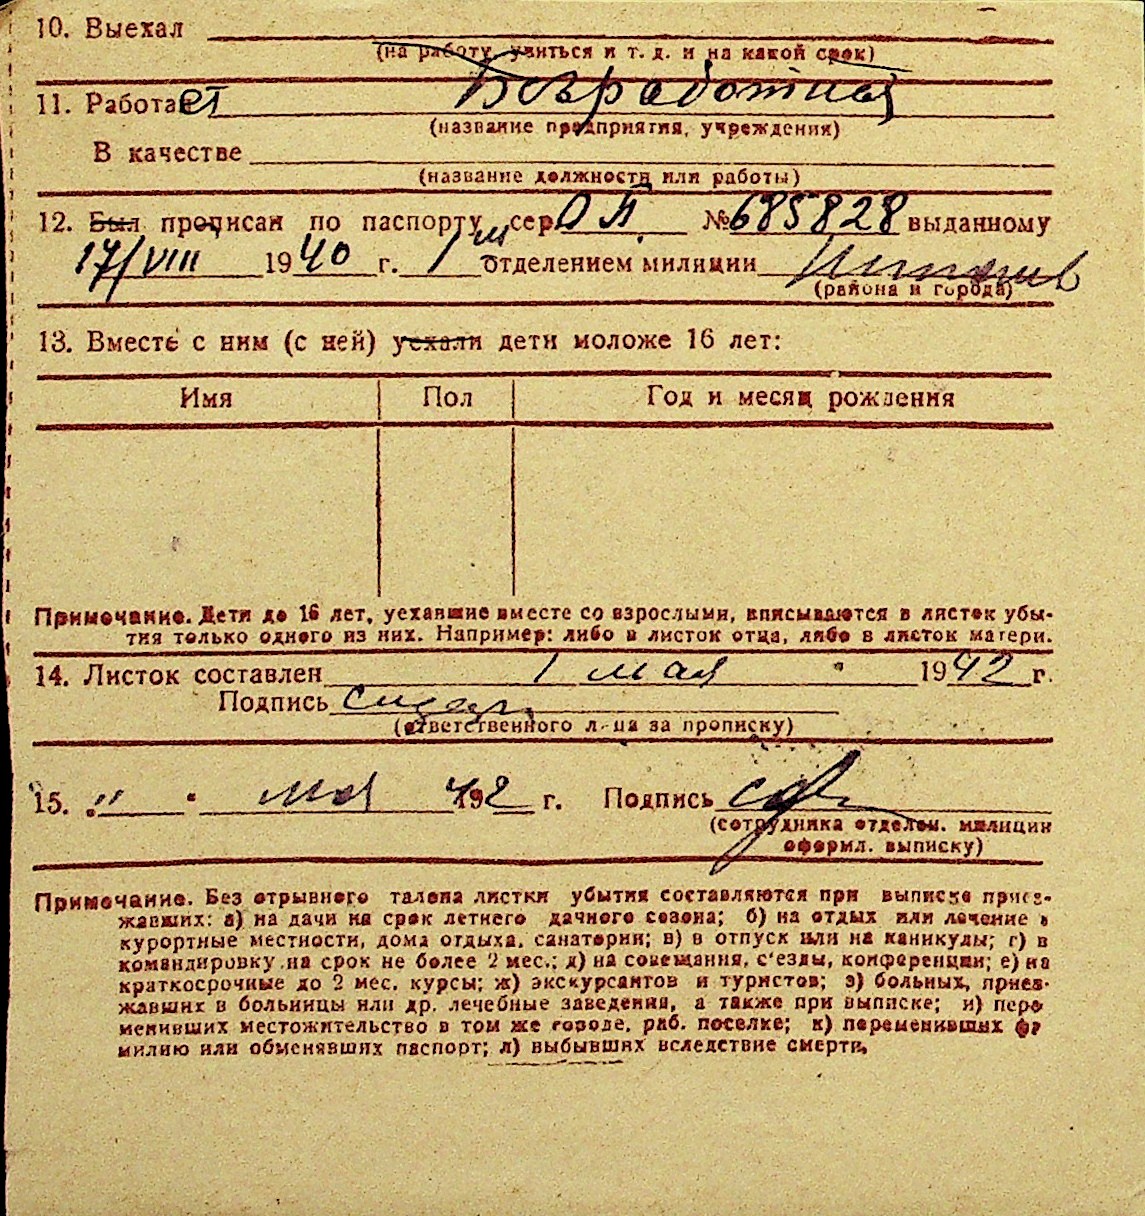 10. Выехал
(на работу, учиться и т. д. и на какой срок)
11. Работает Безработная
(название предприятия, учреждения)
В качестве
(название должности или работы)
12. Был прописан по паспорту сер. № 685828 выданному
17/VIII 1940 г. 1 отделением милиции
(района и города)
13. Вместе с ним (с ней) уехали дети моложе 16 лет:
Имя Пол Год и месяц рождения
Примечание. Дети до 16 лет, уехавшие вместе со взрослыми, вписываются в листок убы-
тия только одного из них. Например: либо в листок отца, либо в листок матери.
14. Листок составлен 1 мая 1942 г.
Подпись
(ответственного лица за прописку)
15. " " мая 1942 г. Подпись
(сотрудника отделен. милиции
оформл. выписку)
Примечание. Без отрывного талона листки убытия составляются при выписке приез-
жавших: а) на дачи на срок летнего дачного сезона; б) на отдых или лечение в
курортные местности, дома отдыха, санатории; в) в отпуск или на каникулы; г) в
командировку на срок не более 2 мес.; д) на совещания, с'езды, конференции; е) на
краткосрочные до 2 мес. курсы; ж) экскурсантов и туристов; з) больных, приез-
жавших в больницы или др. лечебные заведения, а также при выписке; и) пере
менивших местожительство в том же городе, раб. поселке; к) переменивших фа
милию или обменявших паспорт; л) выбывших вследствие смерти.